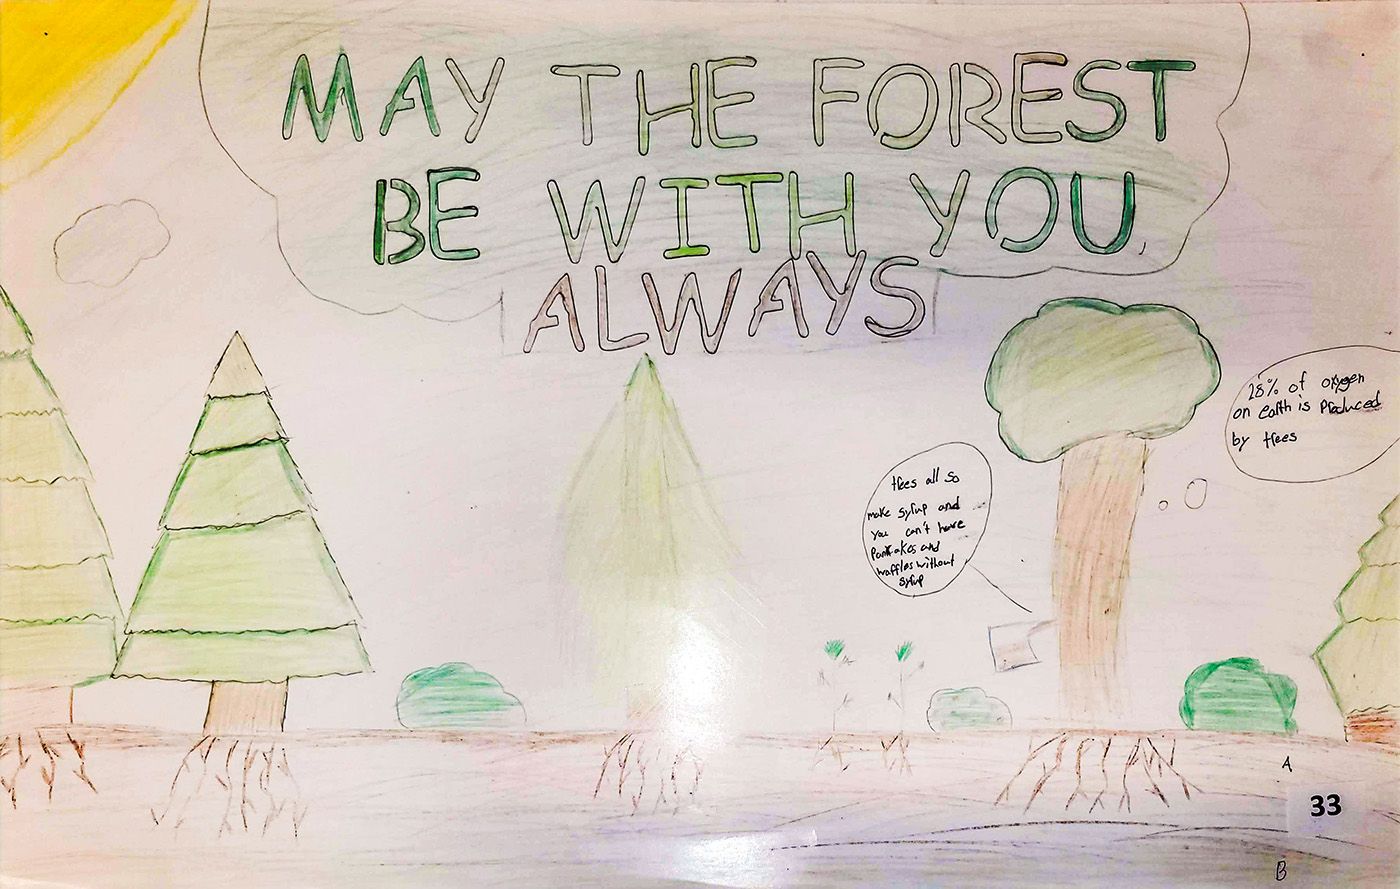 MAY THE FOREST
BE WITH YOU,
ALWAYS
28% of oxygen
on earth is produced
by trees
trees all so
make syrup and
you can't have
pankakes and
waffles without
syrup
A
33
B